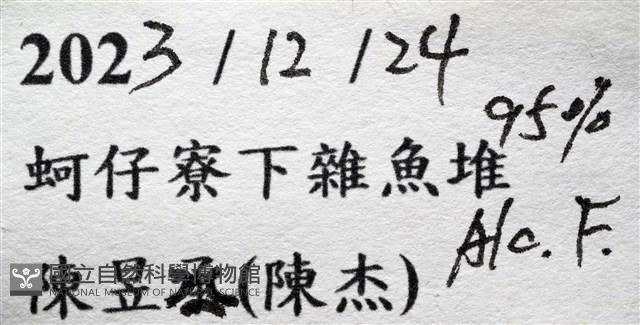 2023/12/24
95%
蚵仔寮下雜魚堆
Alc. F.
國立自然科學博物館
NATIONAL MUSEUM OF NATURAL SCIENCE
陳昱(陳杰)